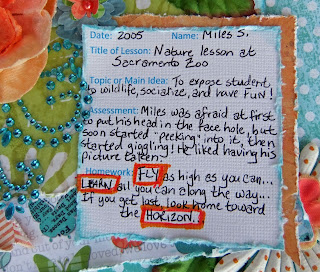 Date: 2005 Name: Miles S.
Title of Lesson: Nature lesson at
Sacramento Zoo
Topic or Main Idea: To expose student,
to wildlife, socialize, and have FUN!
Assessment: Miles was afraid at first
to put his head in the face hole, but
soon started "peeking" into it, then
started giggling! He liked having his
picture taken.
Homework: FLY as high as you can...
LEARN all you can along the way...
If you get lost, look home toward
the HORIZON.